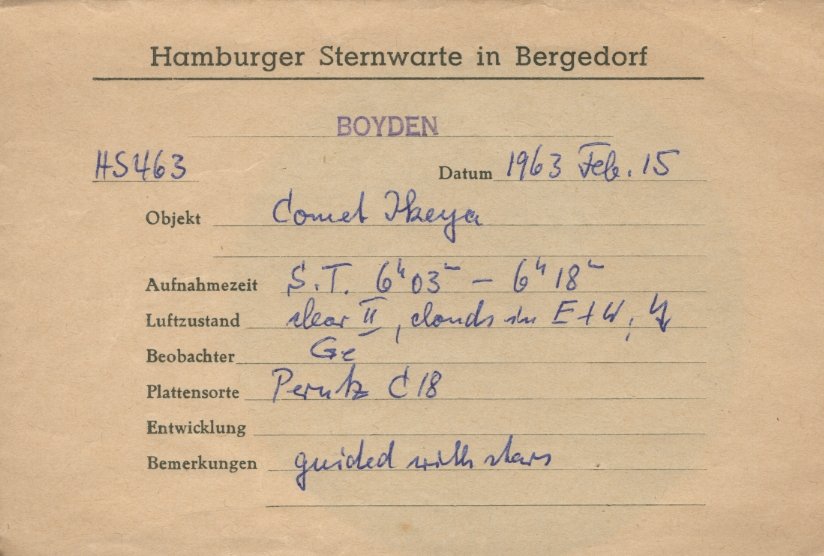 Hamburger Sternwarte in Bergedorf
BOYDEN
HS463 Datum 1963 Feb. 15
Objekt Comet Ikeya
Aufnahmezeit S.T. 6ʰ03ᵐ – 6ʰ18ᵐ
Luftzustand clear II, clouds in E+W,
Beobachter Ge
Plattensorte Perutz C18
Entwicklung
Bemerkungen guided with stars